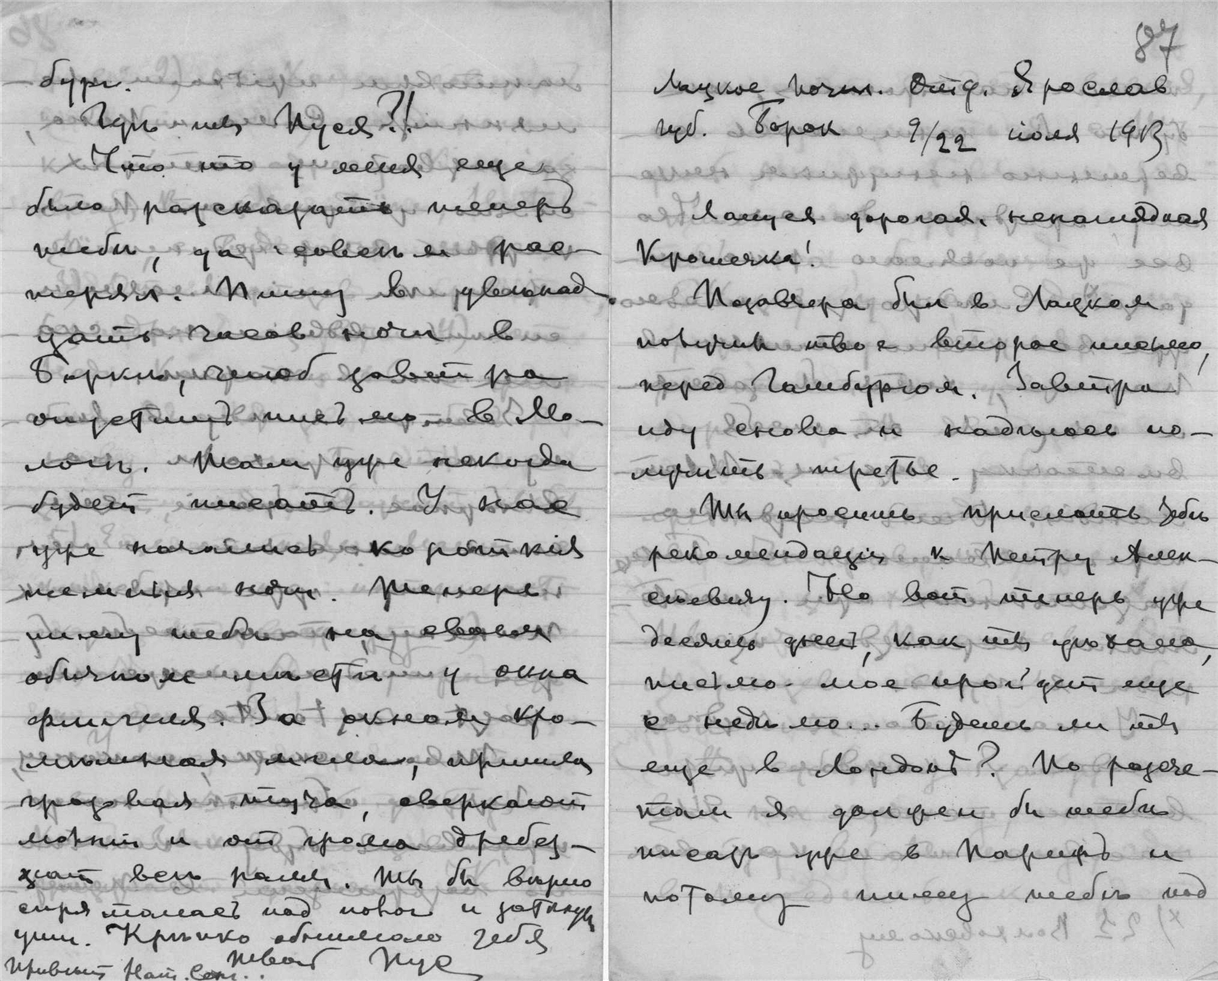 бург.
Гдѣ ты Пуся?!
Что то у меня еще
было разсказать теперь
тебѣ, да совсѣм рас-
терял. Пишу в двенад-
цать часов ночи в
Боркѣ, чтоб завтра
опустить письмо в Мо-
логѣ. Там уже некогда
будет писать. У нас
уже начались короткія
темныя ночи. Теперь
пишу тебѣ на своем
обычном мѣстѣ у окна
флигеля. За окном кро-
мѣшная мгла, пришла
грозовая туча, сверкают
молніи и от грома дребез-
жат всѣ рамы. Ты бы вѣрно
спряталась под и заткнула
уши. Крѣпко обнимаю тебя
твой Пус
Привѣт Нат.
87
Лацкое почт. Отд. Ярослав
губ. Борок 9/22 іюля 1913
Ляпуся дорогая, ненаглядная
Крошечка!
Позавчера был в Лацком
получил твое второе письмо,
перед Гамбургом. Завтра
иду снова и надѣюсь по-
лучить третье.
Ты просишь прислать тебѣ
рекомендацію к Петру Алек-
сѣевичу. Но вот теперь уже
десять дней, как ты уѣхала,
письмо мое пройдет еще
с недѣлю... Будешь ли ты
еще в Лондонѣ? По разсче-
там я должен бы тебѣ
писать уже в Париж и
потому пишу тебѣ под